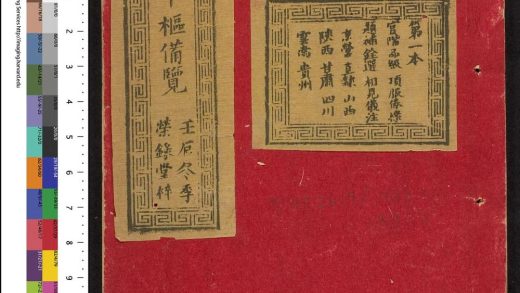 第一本
官階品級 頂服
題補銓選 相見儀注
京營 直隸 山西
陝西 甘肅 四川
雲南 貴州
中樞備覽
壬辰冬季
榮錄堂梓
2
3
4
5
6
7
8
9